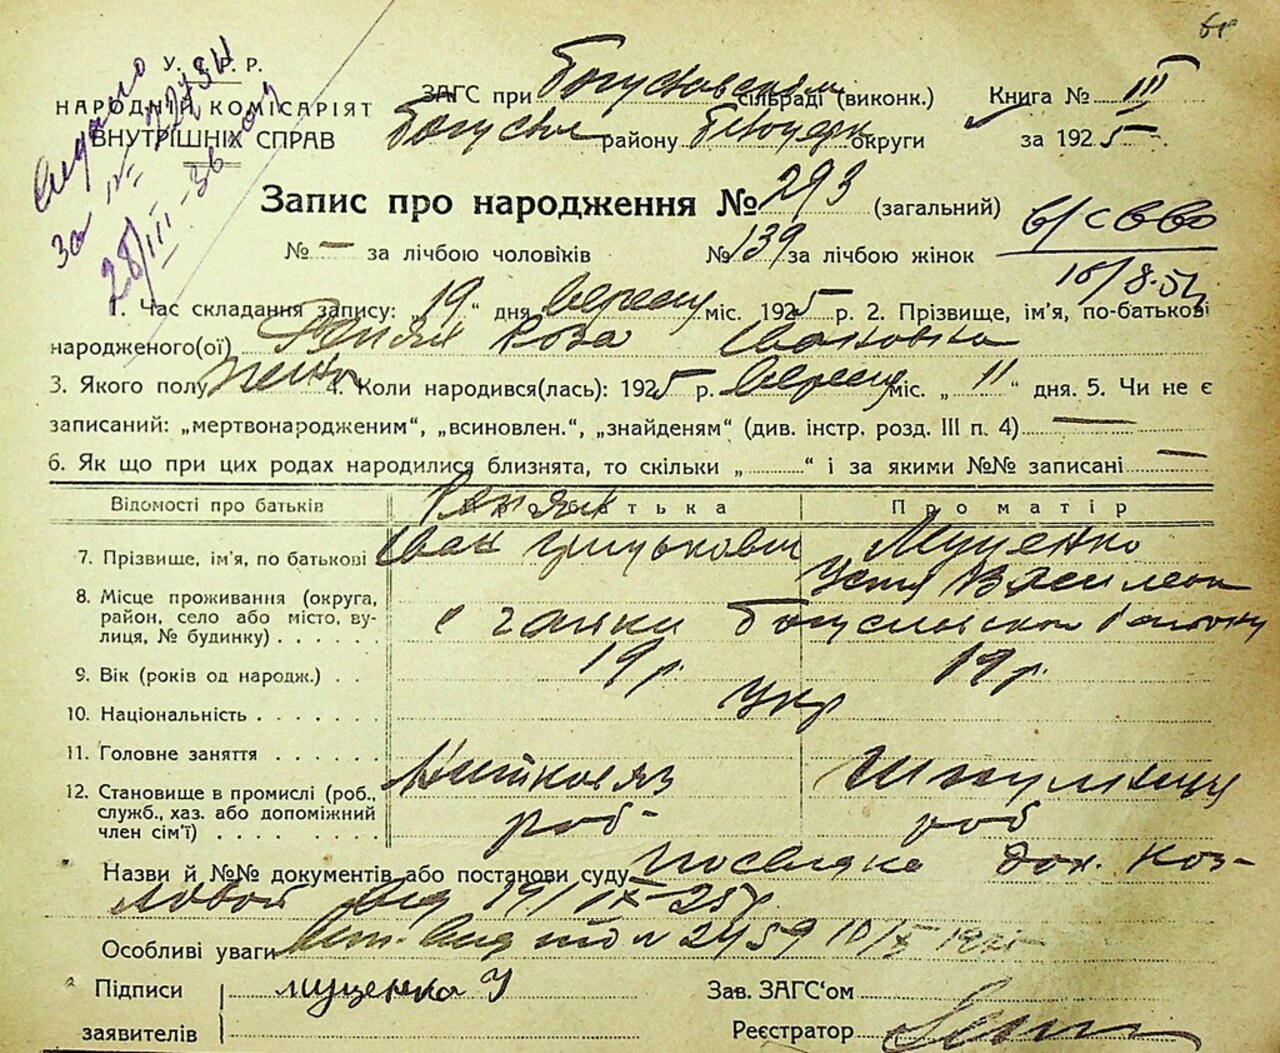 У. С. Р. Р.
НАРОДНІЙ КОМІСАРІЯТ
ВНУТРІШНІХ СПРАВ
Видано
за № 
28/III-36
ЗАГС при Богуславськім сільраді (виконк.)
Богуслав району Білоцерк округи
Книга № III
за 1925
Запис про народження № 293 (загальний)
№ — за лічбою чоловіків № 139 за лічбою жінок
1. Час складання запису: „19“ дня вересня міс. 1925 р. 2. Прізвище, ім'я, по-батькові
народженого(ої) Роза Івановна
3. Якого полу жіно 4. Коли народився(лась): 1925 р. вересня міс. „11“ дня. 5. Чи не є
записаний: „мертвонародженим“, „всиновлен.“, „знайденям“ (див. інстр. розд. III п. 4) —
6. Як що при цих родах народилися близнята, то скільки „ “ і за якими №№ записані —
Відомості про батьків
Про матір
7. Прізвище, ім'я, по батькові Іван Грицькович Муценко
Устя Василівна
8. Місце проживання (округа,
район, село або місто, ву-
лиця, № будинку)
с Богуславського району
9. Вік (років од народж.) 19 р. 19 р.
10. Національність Укр
11. Головне заняття
12. Становище в промислі (роб.,
служб., хаз. або допоміжний
член сім'ї) роб роб
Назви й №№ документів або постанови суду Посвідка Коз-
ловой від 19/IX-25 р
Особливі уваги № 2459 10/X 1925
Підписи
заявителів
муценка У
Зав. ЗАГС'ом
Реєстратор